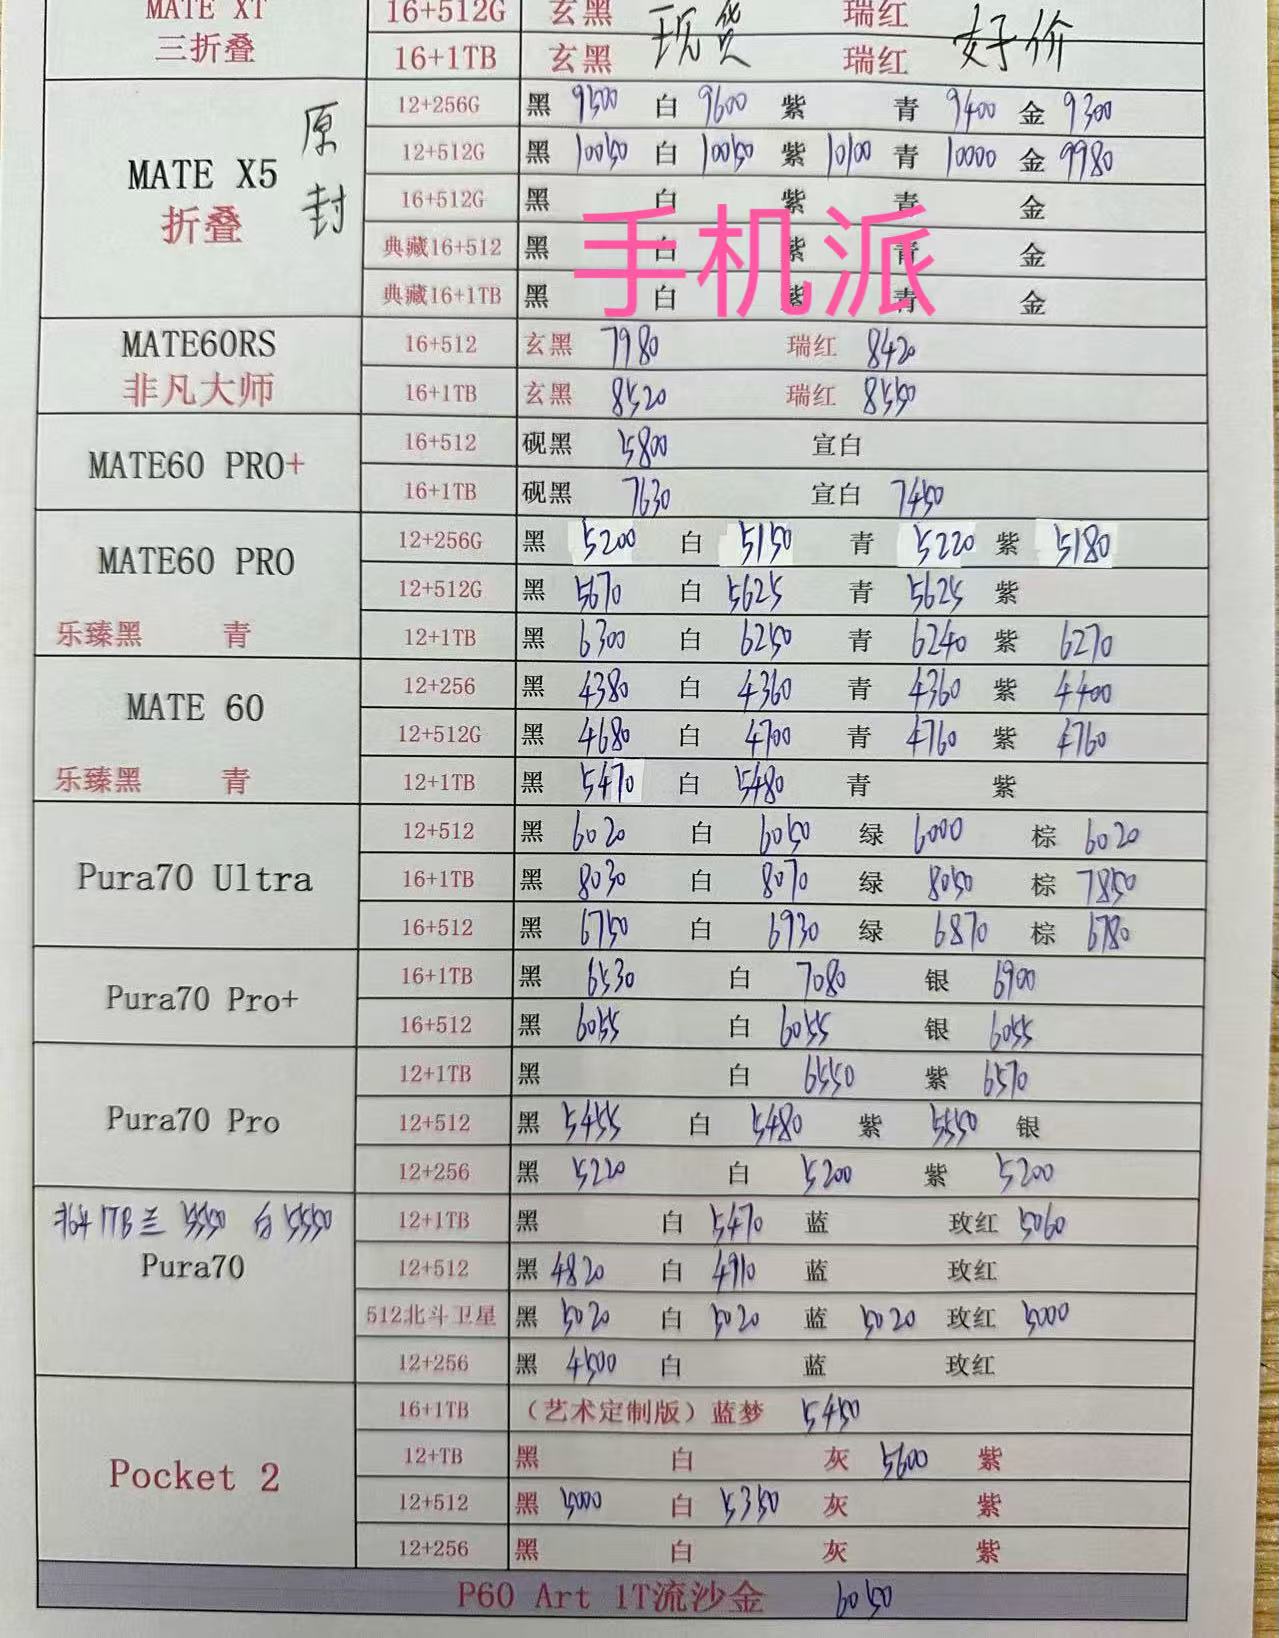 MATE XT 16+512G 玄黑 现货 瑞红 好价
三折叠 16+1TB 玄黑 瑞红
原封
MATE X5
折叠
12+256G 黑 9500 白 9600 紫 青 9400 金 9300
12+512G 黑 10050 白 10050 紫 10100 青 10000 金 9980
16+512G 黑 白 紫 青 金
典藏16+512 黑 白 紫 青 金
典藏16+1TB 黑 白 紫 青 金
手机派
MATE60RS
非凡大师
16+512 玄黑 7980 瑞红 8420
16+1TB 玄黑 8520 瑞红 8550
MATE60 PRO+
16+512 砚黑 5800 宣白
16+1TB 砚黑 7630 宣白 7450
MATE60 PRO
乐臻黑 青
12+256G 黑 5200 白 5150 青 5220 紫 5180
12+512G 黑 5670 白 5625 青 5625 紫
12+1TB 黑 6300 白 6250 青 6240 紫 6270
MATE 60
乐臻黑 青
12+256 黑 4380 白 4360 青 4360 紫 4400
12+512G 黑 4680 白 4700 青 4760 紫 4760
12+1TB 黑 5470 白 5480 青 紫
Pura70 Ultra
12+512 黑 6020 白 6050 绿 6000 棕 6020
16+1TB 黑 8030 白 8070 绿 8050 棕 7850
16+512 黑 6750 白 6930 绿 6870 棕 6780
Pura70 Pro+
16+1TB 黑 6530 白 7080 银 6900
16+512 黑 6055 白 6055 银 6055
Pura70 Pro
12+1TB 黑 白 6550 紫 6570
12+512 黑 5455 白 5480 紫 5550 银
12+256 黑 5220 白 5200 紫 5200
北斗 1TB 兰 5550 白 5550
Pura70
12+1TB 黑 白 5470 蓝 玫红 5060
12+512 黑 4820 白 4910 蓝 玫红
512北斗卫星 黑 5020 白 5020 蓝 5020 玫红 5000
12+256 黑 4500 白 蓝 玫红
Pocket 2
16+1TB （艺术定制版）蓝梦 5450
12+TB 黑 白 灰 5600 紫
12+512 黑 5000 白 5350 灰 紫
12+256 黑 白 灰 紫
P60 Art 1T流沙金 6050